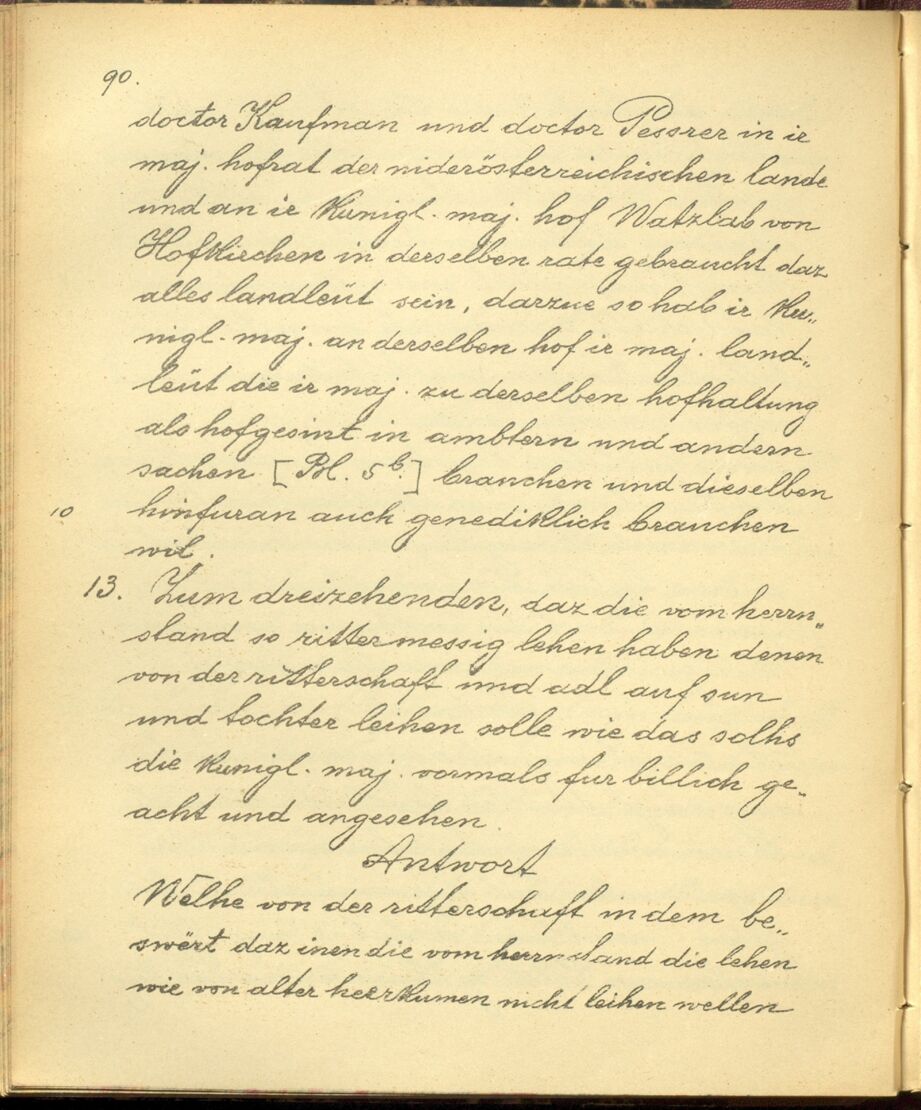 90.
doctor Kaufman und doctor Pessrer in ir
maj. hofrat der niderösterreichischen lande
und an ir kunigl. maj. hof Watzlab von
Hofkirchen in derselben rate gebraucht daz
alles landleüt sein, darzue so hab ir ku„
nigl. maj. an derselben hof ir maj. land„
leüt die ir maj. zu derselben hofhaltung
als hofgesint in ambtern und andern
sachen [Bl. 5b.] brauchen und dieselben
10 hinfuran auch genediklich brauchen
wil.
13. Zum dreizehenden, daz die vom herrn„
stand so rittermessig lehen haben denen
von der ritterschaft und adl auf sun
und tochter leihen solle wie das solhs
die kunigl. maj. vormals fur billich ge„
acht und angesehen.
Antwort
Welhe von der ritterschaft in dem be„
swërt daz inen die vom herrnstand die lehen
wie von alter heerkumen nicht leihen wellen